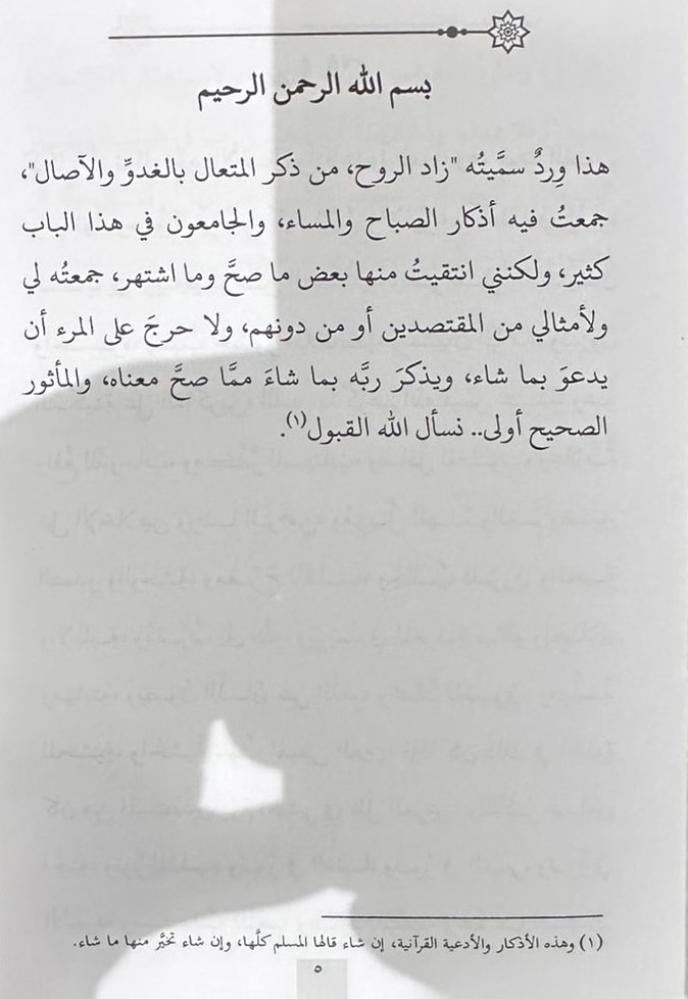 بسم الله الرحمن الرحيم
هذا وِردٌ سمَّيتُه "زاد الروح، من ذكر المتعال بالغدوِّ والآصال"،
جمعتُ فيه أذكار الصباح والمساء، والجامعون في هذا الباب
كثير، ولكنني انتقيتُ منها بعض ما صحَّ وما اشتهر، جمعتُه لي
ولأمثالي من المقتصدين أو من دونهم، ولا حرجَ على المرء أن
يدعوَ بما شاء، ويذكرَ ربَّه بما شاءَ ممَّا صحَّ معناه، والمأثور
الصحيح أولى.. نسأل الله القبول(١).
(١) وهذه الأذكار والأدعية القرآنية، إن شاء قالها المسلم كلَّها، وإن شاء تخيَّر منها ما شاء.
٥